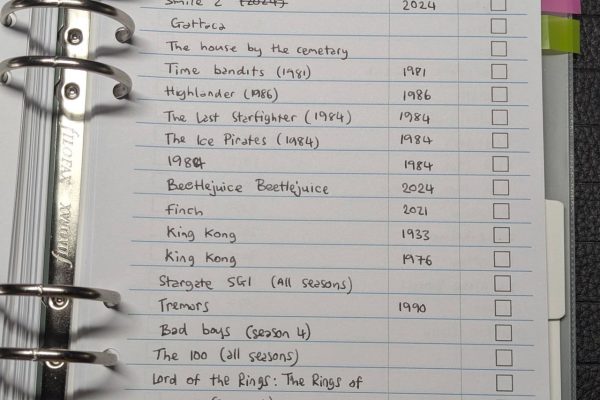 Smile 2 (2024) 2024
Gattaca
The house by the cemetary
Time bandits (1981) 1981
Highlander (1986) 1986
The Last Starfighter (1984) 1984
The Ice Pirates (1984) 1984
1984 1984
Beetlejuice Beetlejuice 2024
Finch 2021
King Kong 1933
King Kong 1976
Stargate SG1 (All seasons)
Tremors 1990
Bad boys (season 4)
The 100 (all seasons)
Lord of the Rings: The Rings of
filofax